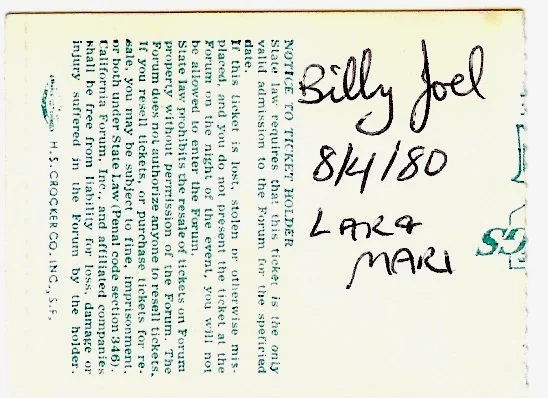 Billy Joel
8/4/80
LARA
MARI
NOTICE TO TICKET HOLDER
State law requires that this ticket is the only
valid admission to the Forum for the speficied
date.
If this ticket is lost, stolen or otherwise mis-
placed, and you do not present the ticket at the
Forum on the night of the event, you will not
be allowed to enter the Forum.
State law prohibits the resale of tickets on Forum
property without permission of the Forum. The
Forum does not authorize anyone to resell tickets.
If you resell tickets, or purchase tickets for re-
sale, you may be subject to fine, imprisonment
or both under State Law (Penal code section 346).
California Forum, Inc., and affiliated companies
shall be free from liability for loss, damage or
injury suffered in the Forum by the holder.
H. S. CROCKER CO., INC., S.F.